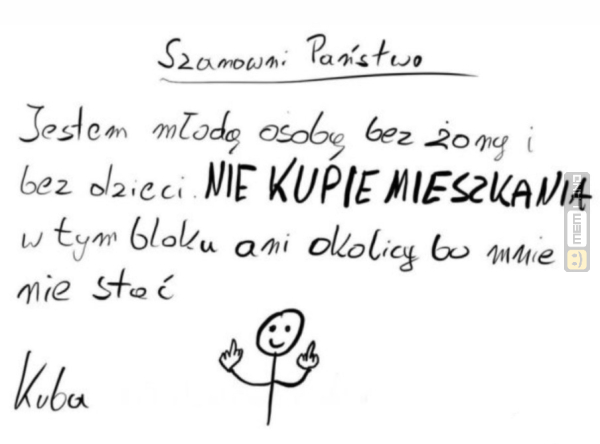 Szanowni Państwo
Jestem młodą osobą bez żony i
bez dzieci. NIE KUPIE MIESZKANIA
w tym bloku ani okolicy bo mnie
nie stać
Kuba